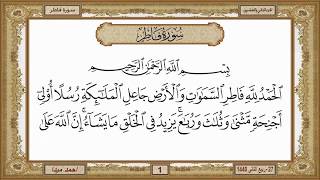 سورة فاطر
سُورَةُ فَاطِرٍ
بِسْمِ اللَّهِ الرَّحْمَٰنِ الرَّحِيمِ
الْحَمْدُ لِلَّهِ فَاطِرِ السَّمَٰوَٰتِ وَالْأَرْضِ جَاعِلِ الْمَلَٰٓئِكَةِ رُسُلًا أُوْلِىٓ
أَجْنِحَةٍ مَّثْنَىٰ وَثُلَٰثَ وَرُبَٰعَ ۚ يَزِيدُ فِى الْخَلْقِ مَا يَشَآءُ ۚ إِنَّ اللَّهَ عَلَىٰ
1